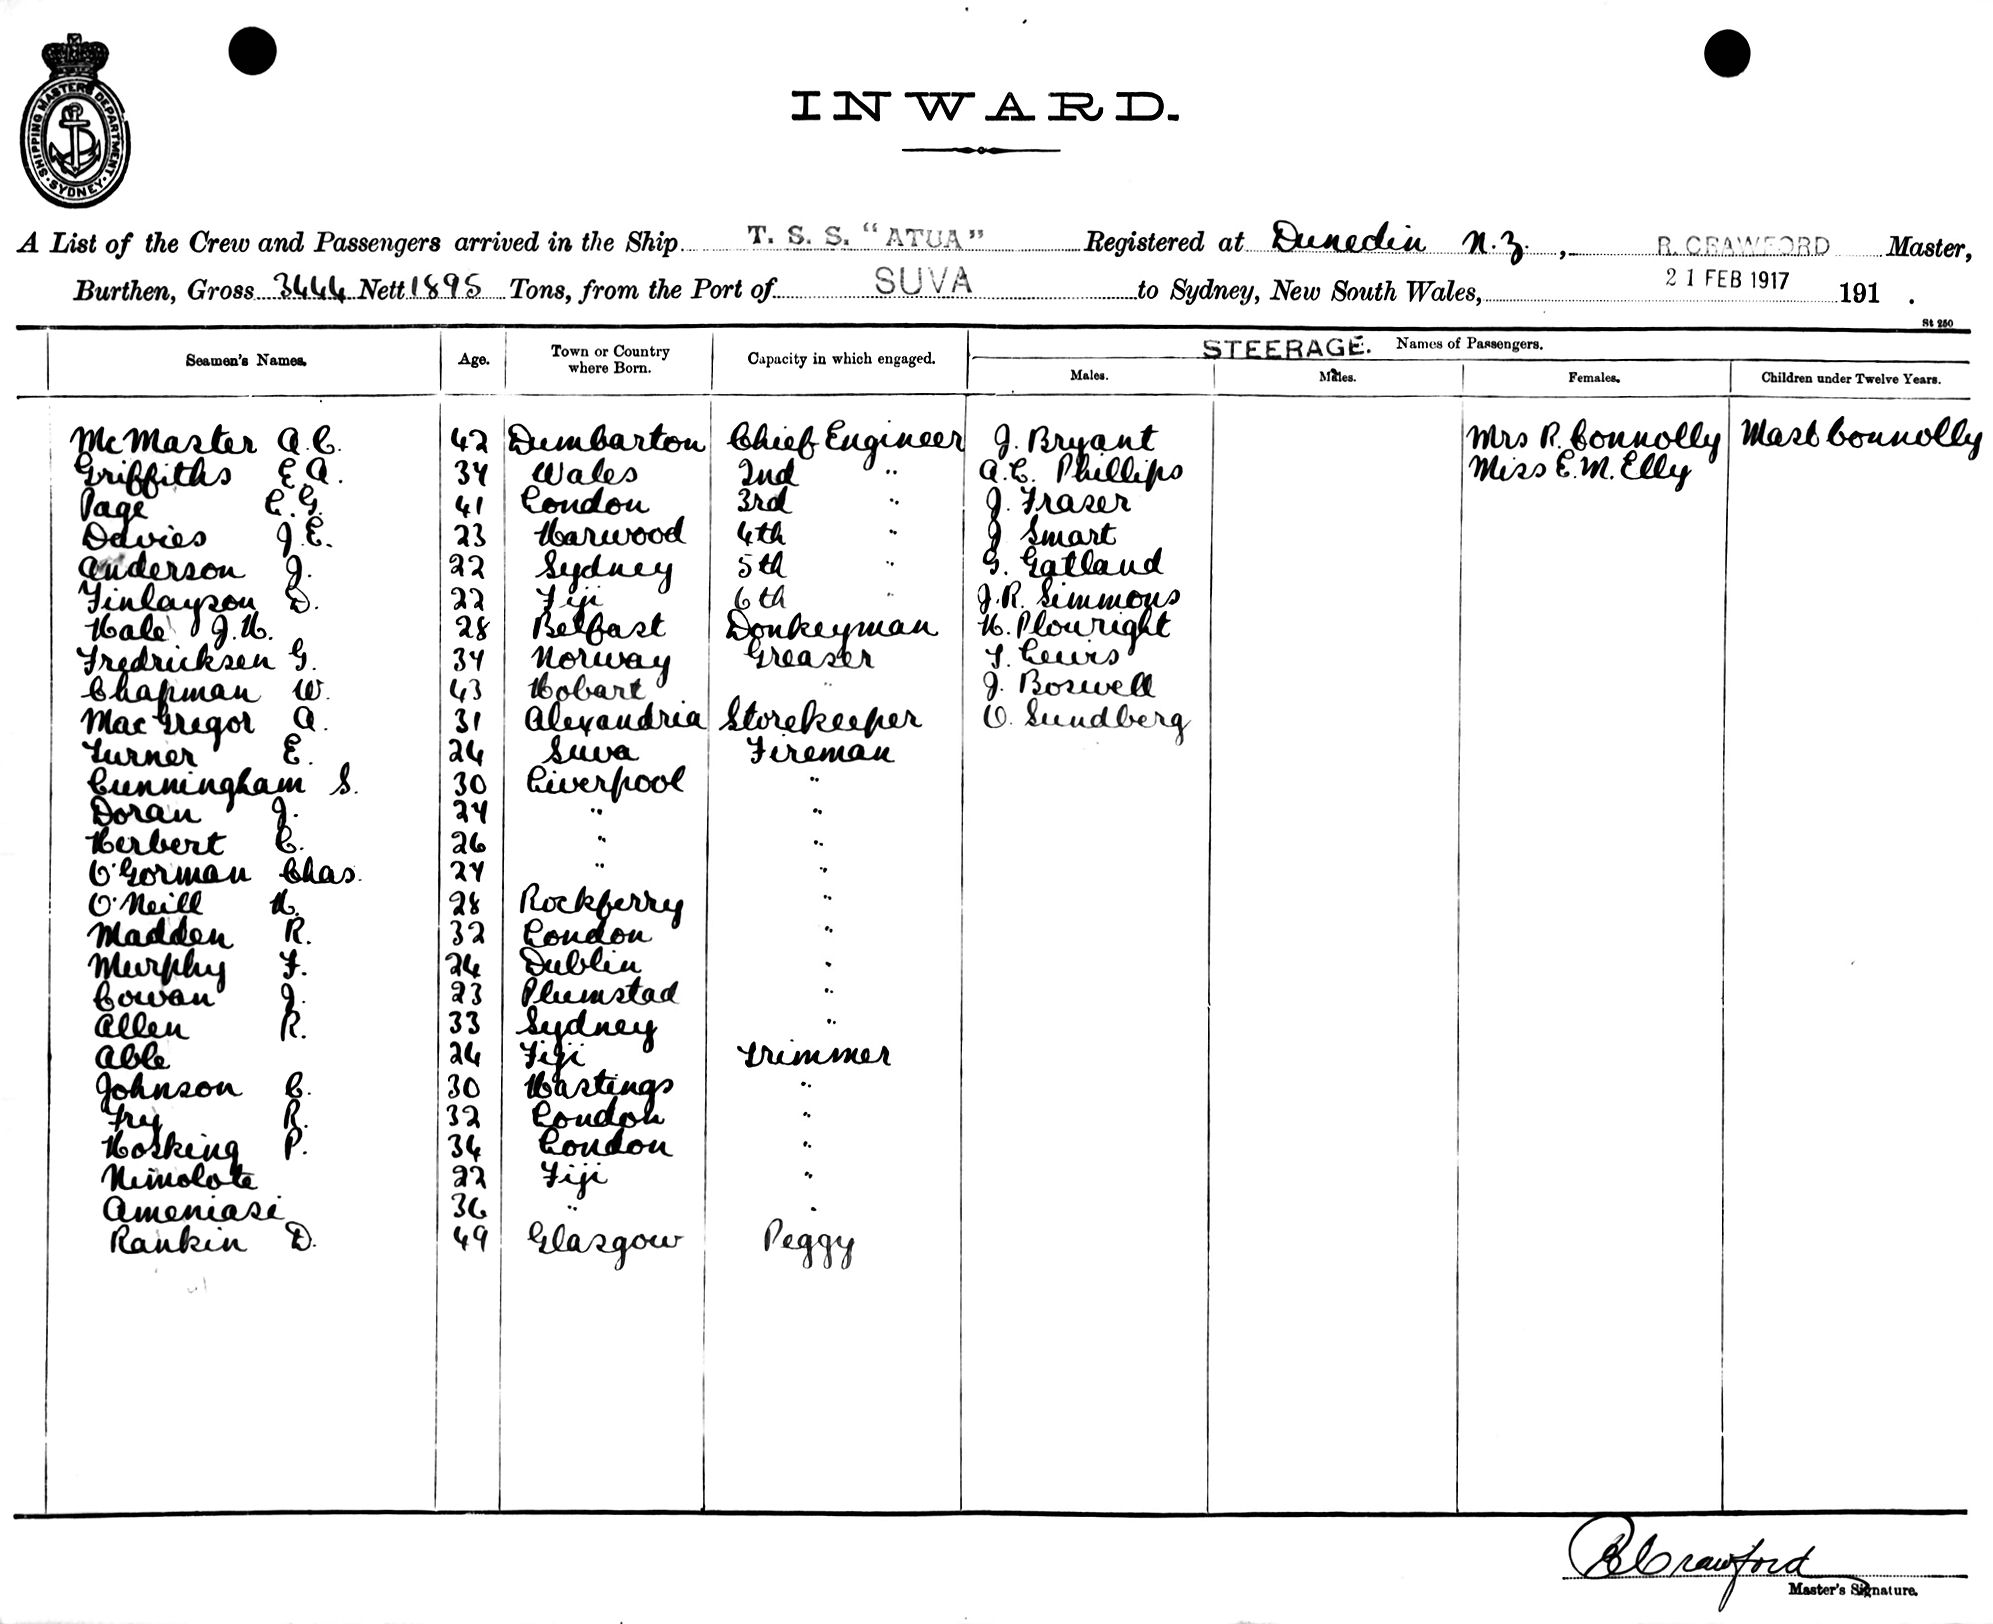 SHIPPING MASTERS DEPARTMENT. SYDNEY
INWARD.
A List of the Crew and Passengers arrived in the Ship T. S. S. "ATUA" Registered at Dunedin N.Z., R. CRAWFORD Master,
Burthen, Gross 3444 Nett 1895 Tons, from the Port of SUVA to Sydney, New South Wales, 21 FEB 1917 191 .
St 250
Seamen's Names. Age. Town or Country where Born. Capacity in which engaged. STEERAGE. Names of Passengers.
Males. Males. Females. Children under Twelve Years.
McMaster A.C. 42 Dumbarton Chief Engineer J. Bryant Mrs R. Connolly Mast Connolly
Griffiths E.A. 34 Wales 2nd " A.C. Phillips Miss E.M. Elly
Page C.G. 41 London 3rd " J. Fraser
Davies J.E. 23 Harwood 4th " J Smart
Anderson J. 22 Sydney 5th " G. Gatland
Finlayson D. 22 Fiji 6th " J.R. Simmons
Hale J.H. 28 Belfast Donkeyman H. Plowright
Fredricksen G. 34 Norway Greaser F. Lewis
Chapman W. 43 Hobart " J. Boswell
MacGregor A. 31 Alexandria Storekeeper O. Sundberg
Turner E. 24 Suva Fireman
Cunningham S. 30 Liverpool "
Doran J. 24 " "
Herbert C. 26 " "
O'Gorman Chas. 24 " "
O'Neill H. 28 Rockferry "
Madden R. 32 London "
Murphy F. 24 Dublin "
Cowan J. 23 Plumstad "
Allen R. 33 Sydney "
Able 24 Fiji Trimmer
Johnson C. 30 Hastings "
Fry R. 32 London "
Hosking P. 34 London "
Nimolote 22 Fiji "
Ameniasi 36 " "
Rankin D. 49 Glasgow Peggy
R Crawford
Master's Signature.